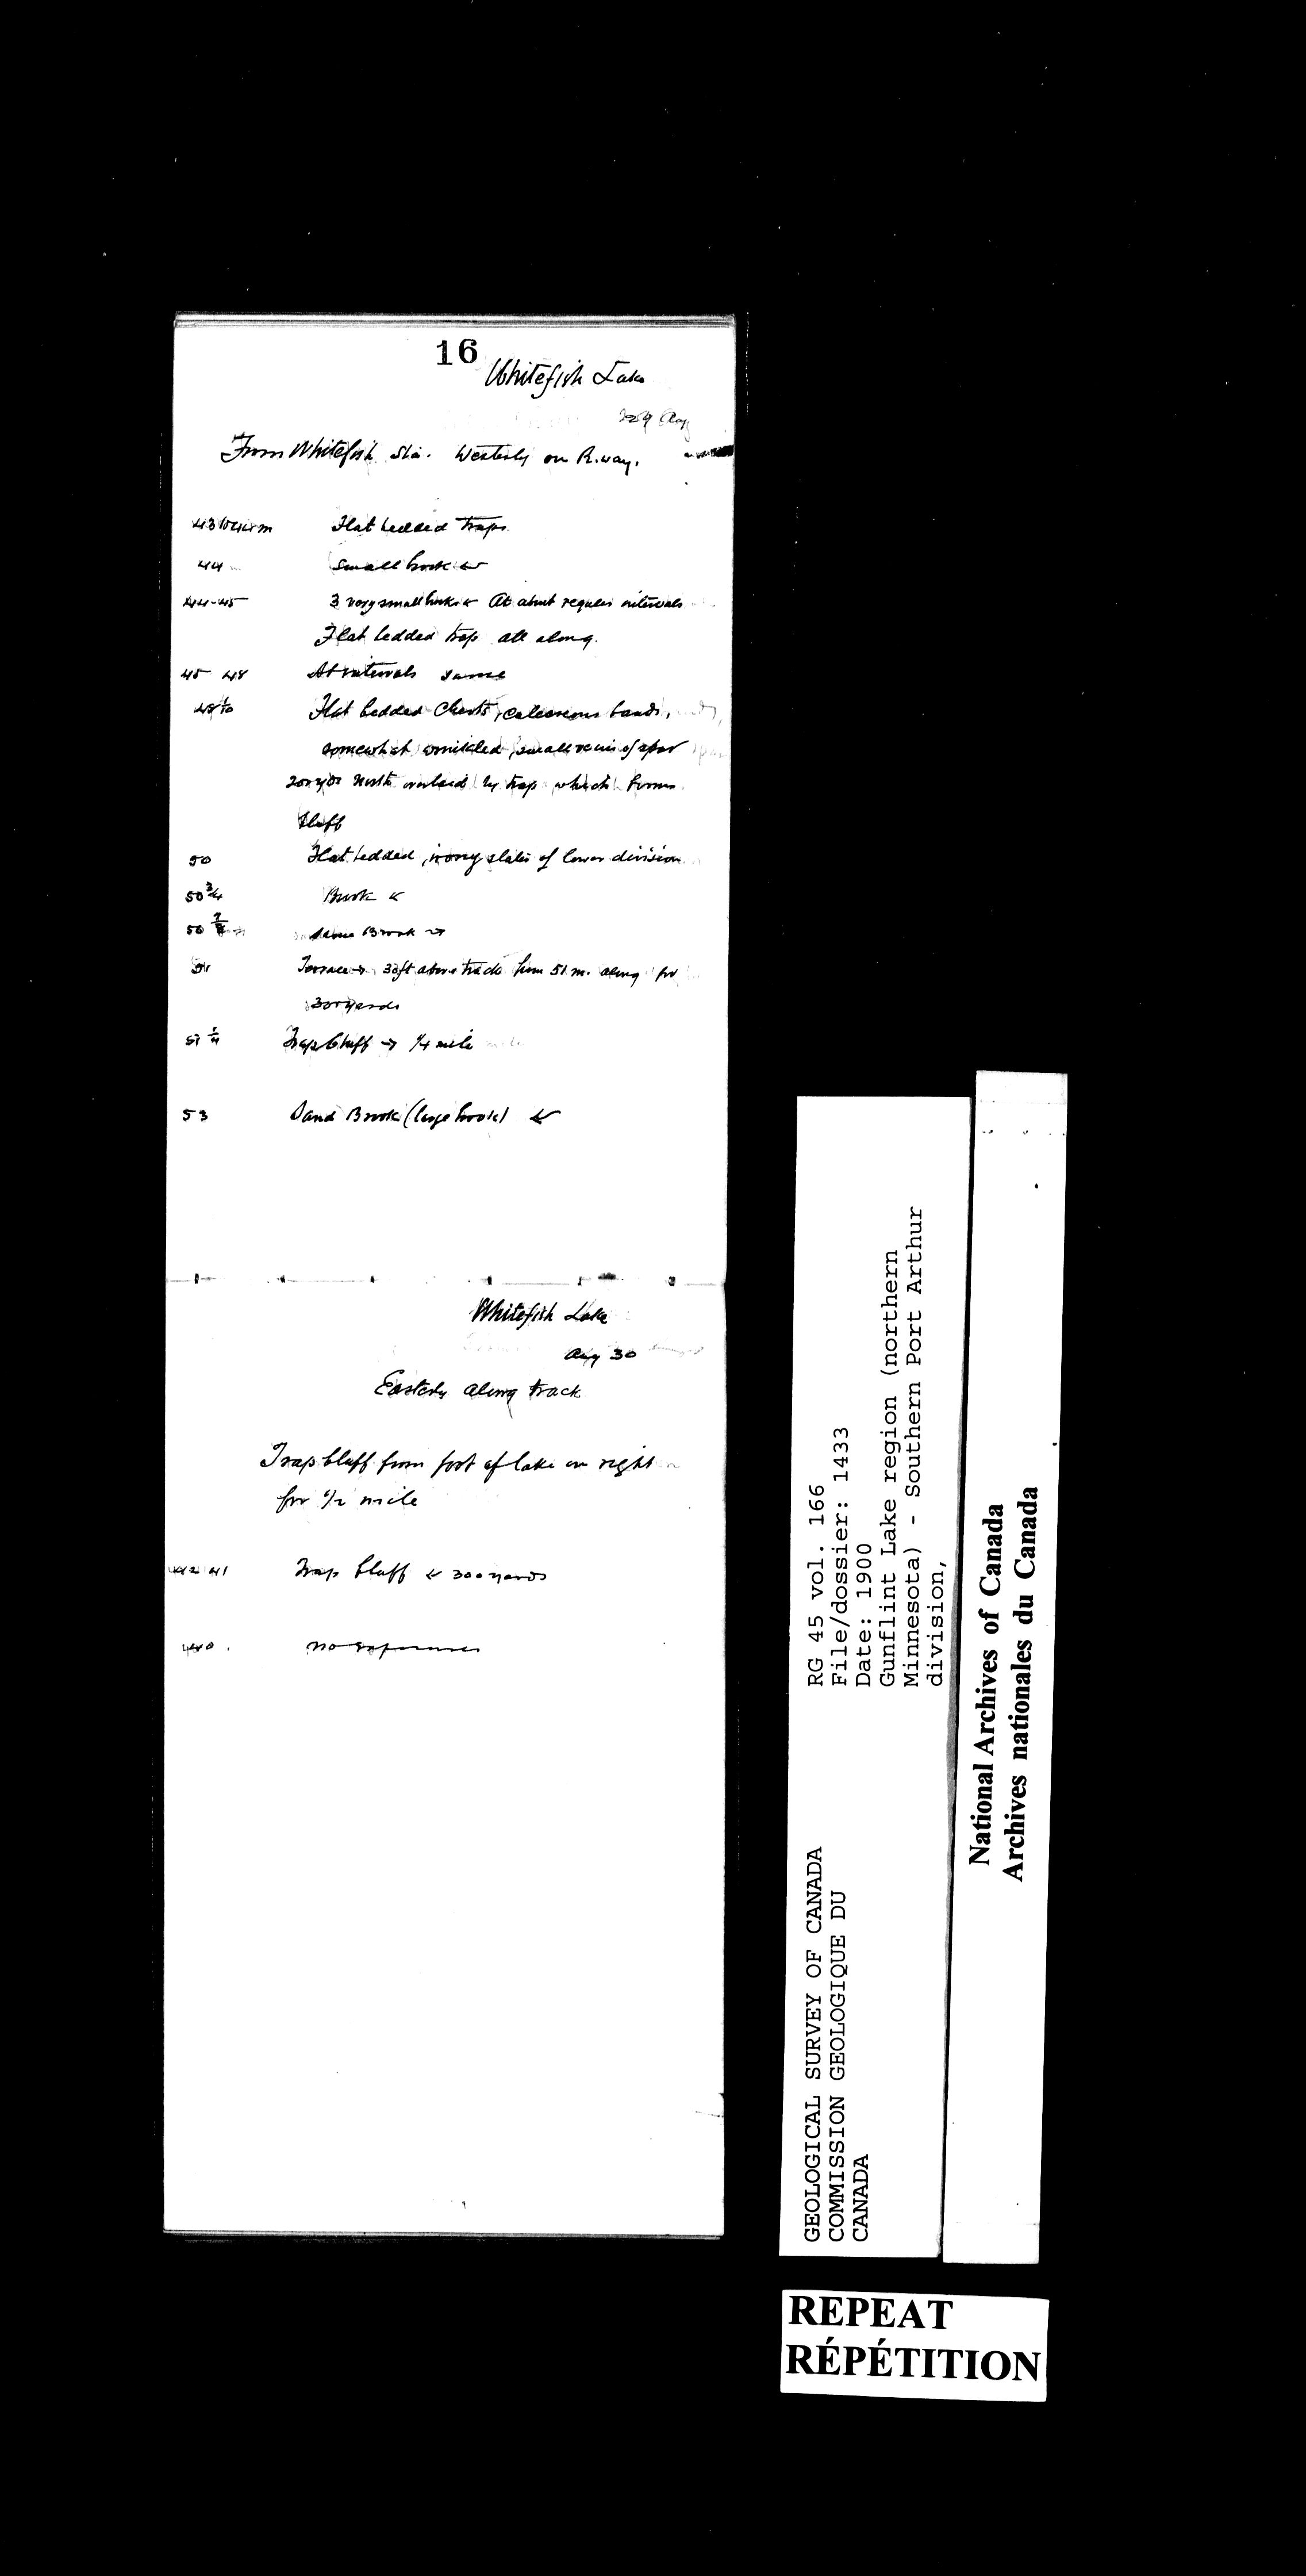 16
Whitefish Lake
29 Aug
From Whitefish Sta. Westerly on R.way.
43 to 44 m Flat bedded traps
44 Small brook ↙
44-45 3 very small brooks ↙ At about regular intervals
Flat bedded trap all along.
45 48 At intervals same
48 1/10 Flat bedded Cherts, calcareous bands,
somewhat wrinkled, small veins of spar
200 yds North overlaid by trap which forms
bluff
50 Flat bedded, irony slates of lower division
50 3/4 Brook ↙
50 same Brook →
51 Terrace → 30 ft above track from 51 m. along for
300 yards
51 1/4 Trap bluff → 1/4 mile
53 Sand Brook (large brook) ↙
Whitefish Lake
Aug 30
Easterly along track
Trap bluff from foot of lake on right
for 1/2 mile
42 41 Trap bluff ↙ 300 yards
40. no exposures
RG 45 vol. 166
File/dossier: 1433
Date: 1900
Gunflint Lake region (northern
Minnesota) - Southern Port Arthur
division,
GEOLOGICAL SURVEY OF CANADA
COMMISSION GEOLOGIQUE DU
CANADA
National Archives of Canada
Archives nationales du Canada
REPEAT
RÉPÉTITION